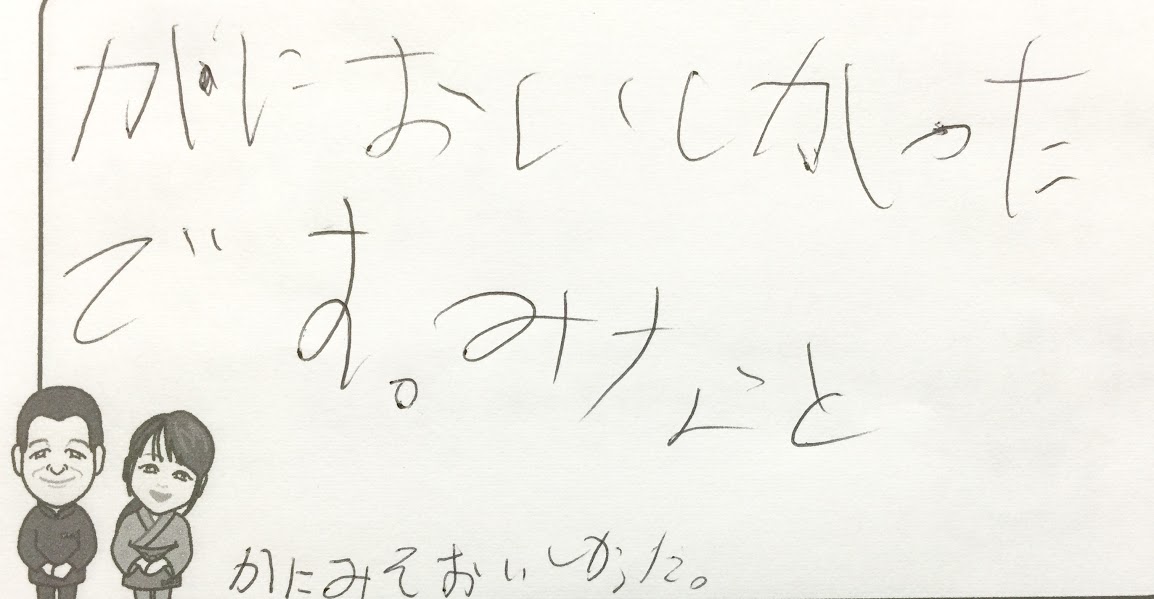 かにおいしかった
です。みなと
かにみそおいしかった。